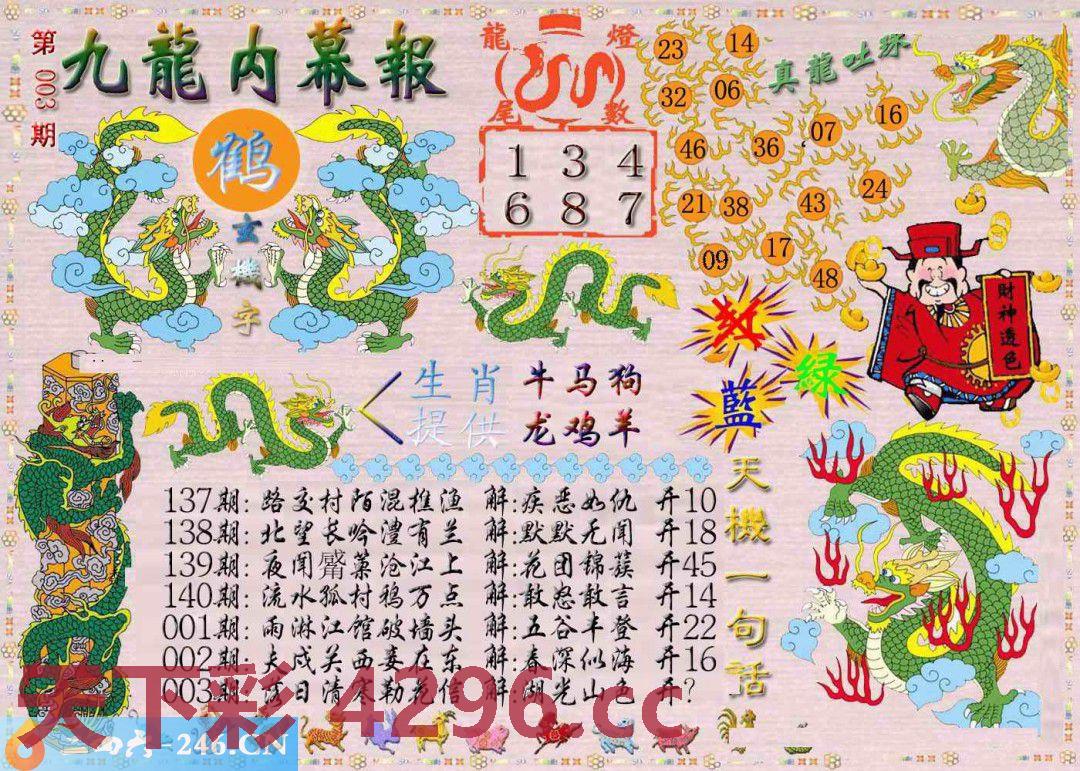 第003期
九龍内幕報
鹤
玄機字
龍燈
尾數
1 3 4
6 8 7
真龍吐珠
23 14
32 06
46 36 07 16
21 38 43 24
09 17 48
红
綠
藍
財神透色
生肖 牛马狗
提供 龙鸡羊
天機一句話
137期: 路交村陌混樵渔 解:疾恶如仇 开10
138期: 北望长吟澧有兰 解:默默无闻 开18
139期: 夜闻觱篥沧江上 解:花团锦簇 开45
140期: 流水孤村鸦万点 解:敢怒敢言 开14
001期: 雨淋江馆破墙头 解:五谷丰登 开22
002期: 夫戍关西妾在东 解:春深似海 开16
003期: 落日清寒勒花信 解:湖光山色 开?
天下彩 4296.cc
=246.CN